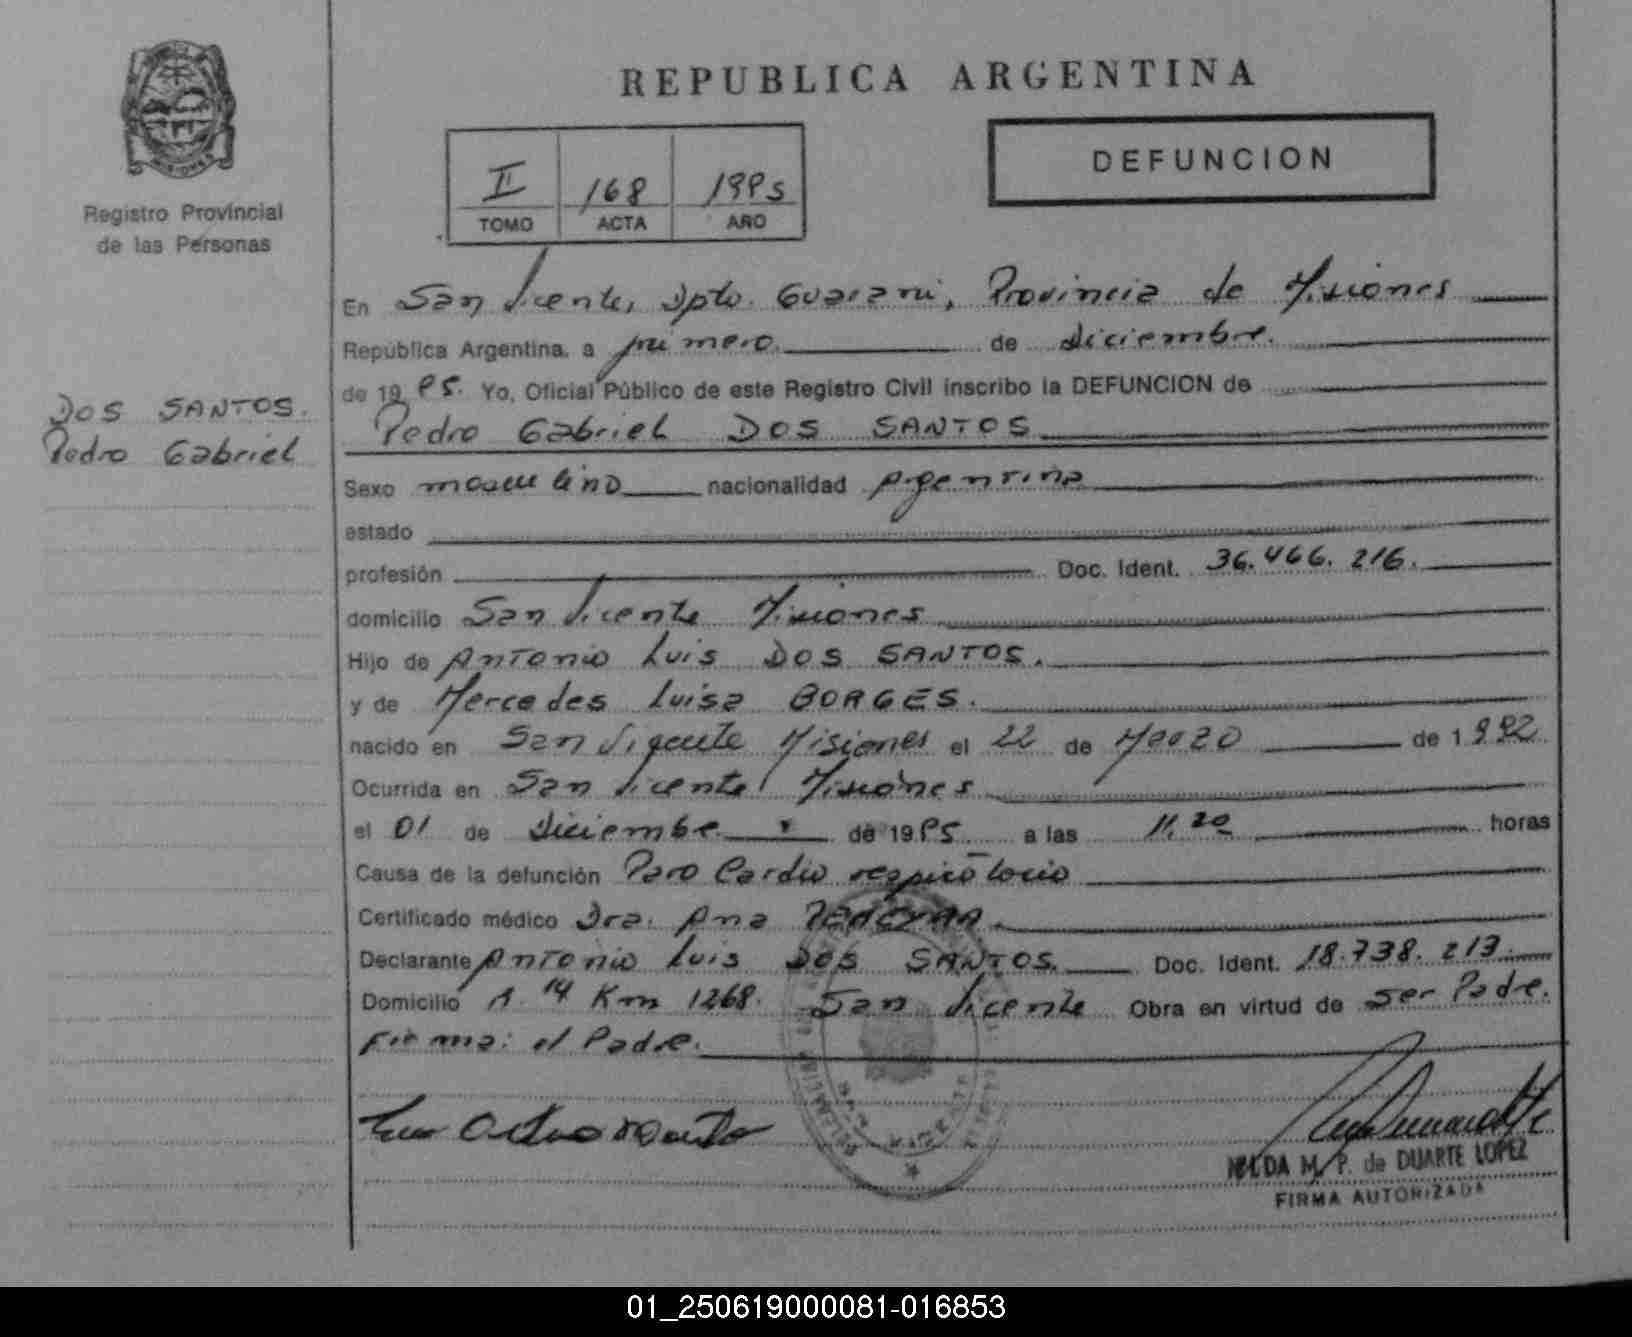 REPUBLICA ARGENTINA
MISIONES
Registro Provincial
de las Personas
II 168 1995
TOMO ACTA AÑO
DEFUNCION
DOS SANTOS.
Pedro Gabriel
En San Vicente, Dpto. Guarani, Provincia de Misiones
República Argentina, a primero de diciembre.
de 19 95. Yo, Oficial Público de este Registro Civil inscribo la DEFUNCION de
Pedro Gabriel DOS SANTOS
Sexo masculino nacionalidad Argentina
estado
profesión Doc. Ident. 36.466.216.
domicilio San Vicente Misiones
Hijo de Antonio Luis DOS SANTOS.
y de Mercedes Luisa BORGES.
nacido en San Vicente Misiones el 22 de Marzo de 1992
Ocurrida en San Vicente Misiones
el 01 de Diciembre de 1995 a las 11.20 horas
Causa de la defunción Paro Cardio respiratorio
Certificado médico Dra. Ana PEREYRA.
Declarante Antonio Luis DOS SANTOS. Doc. Ident. 18.738.213.
Domicilio R. 14 Km 1268. San Vicente Obra en virtud de ser Padre.
Firma: el Padre.
M. P. de DUARTE LOPEZ
FIRMA AUTORIZADA
01_250619000081-016853